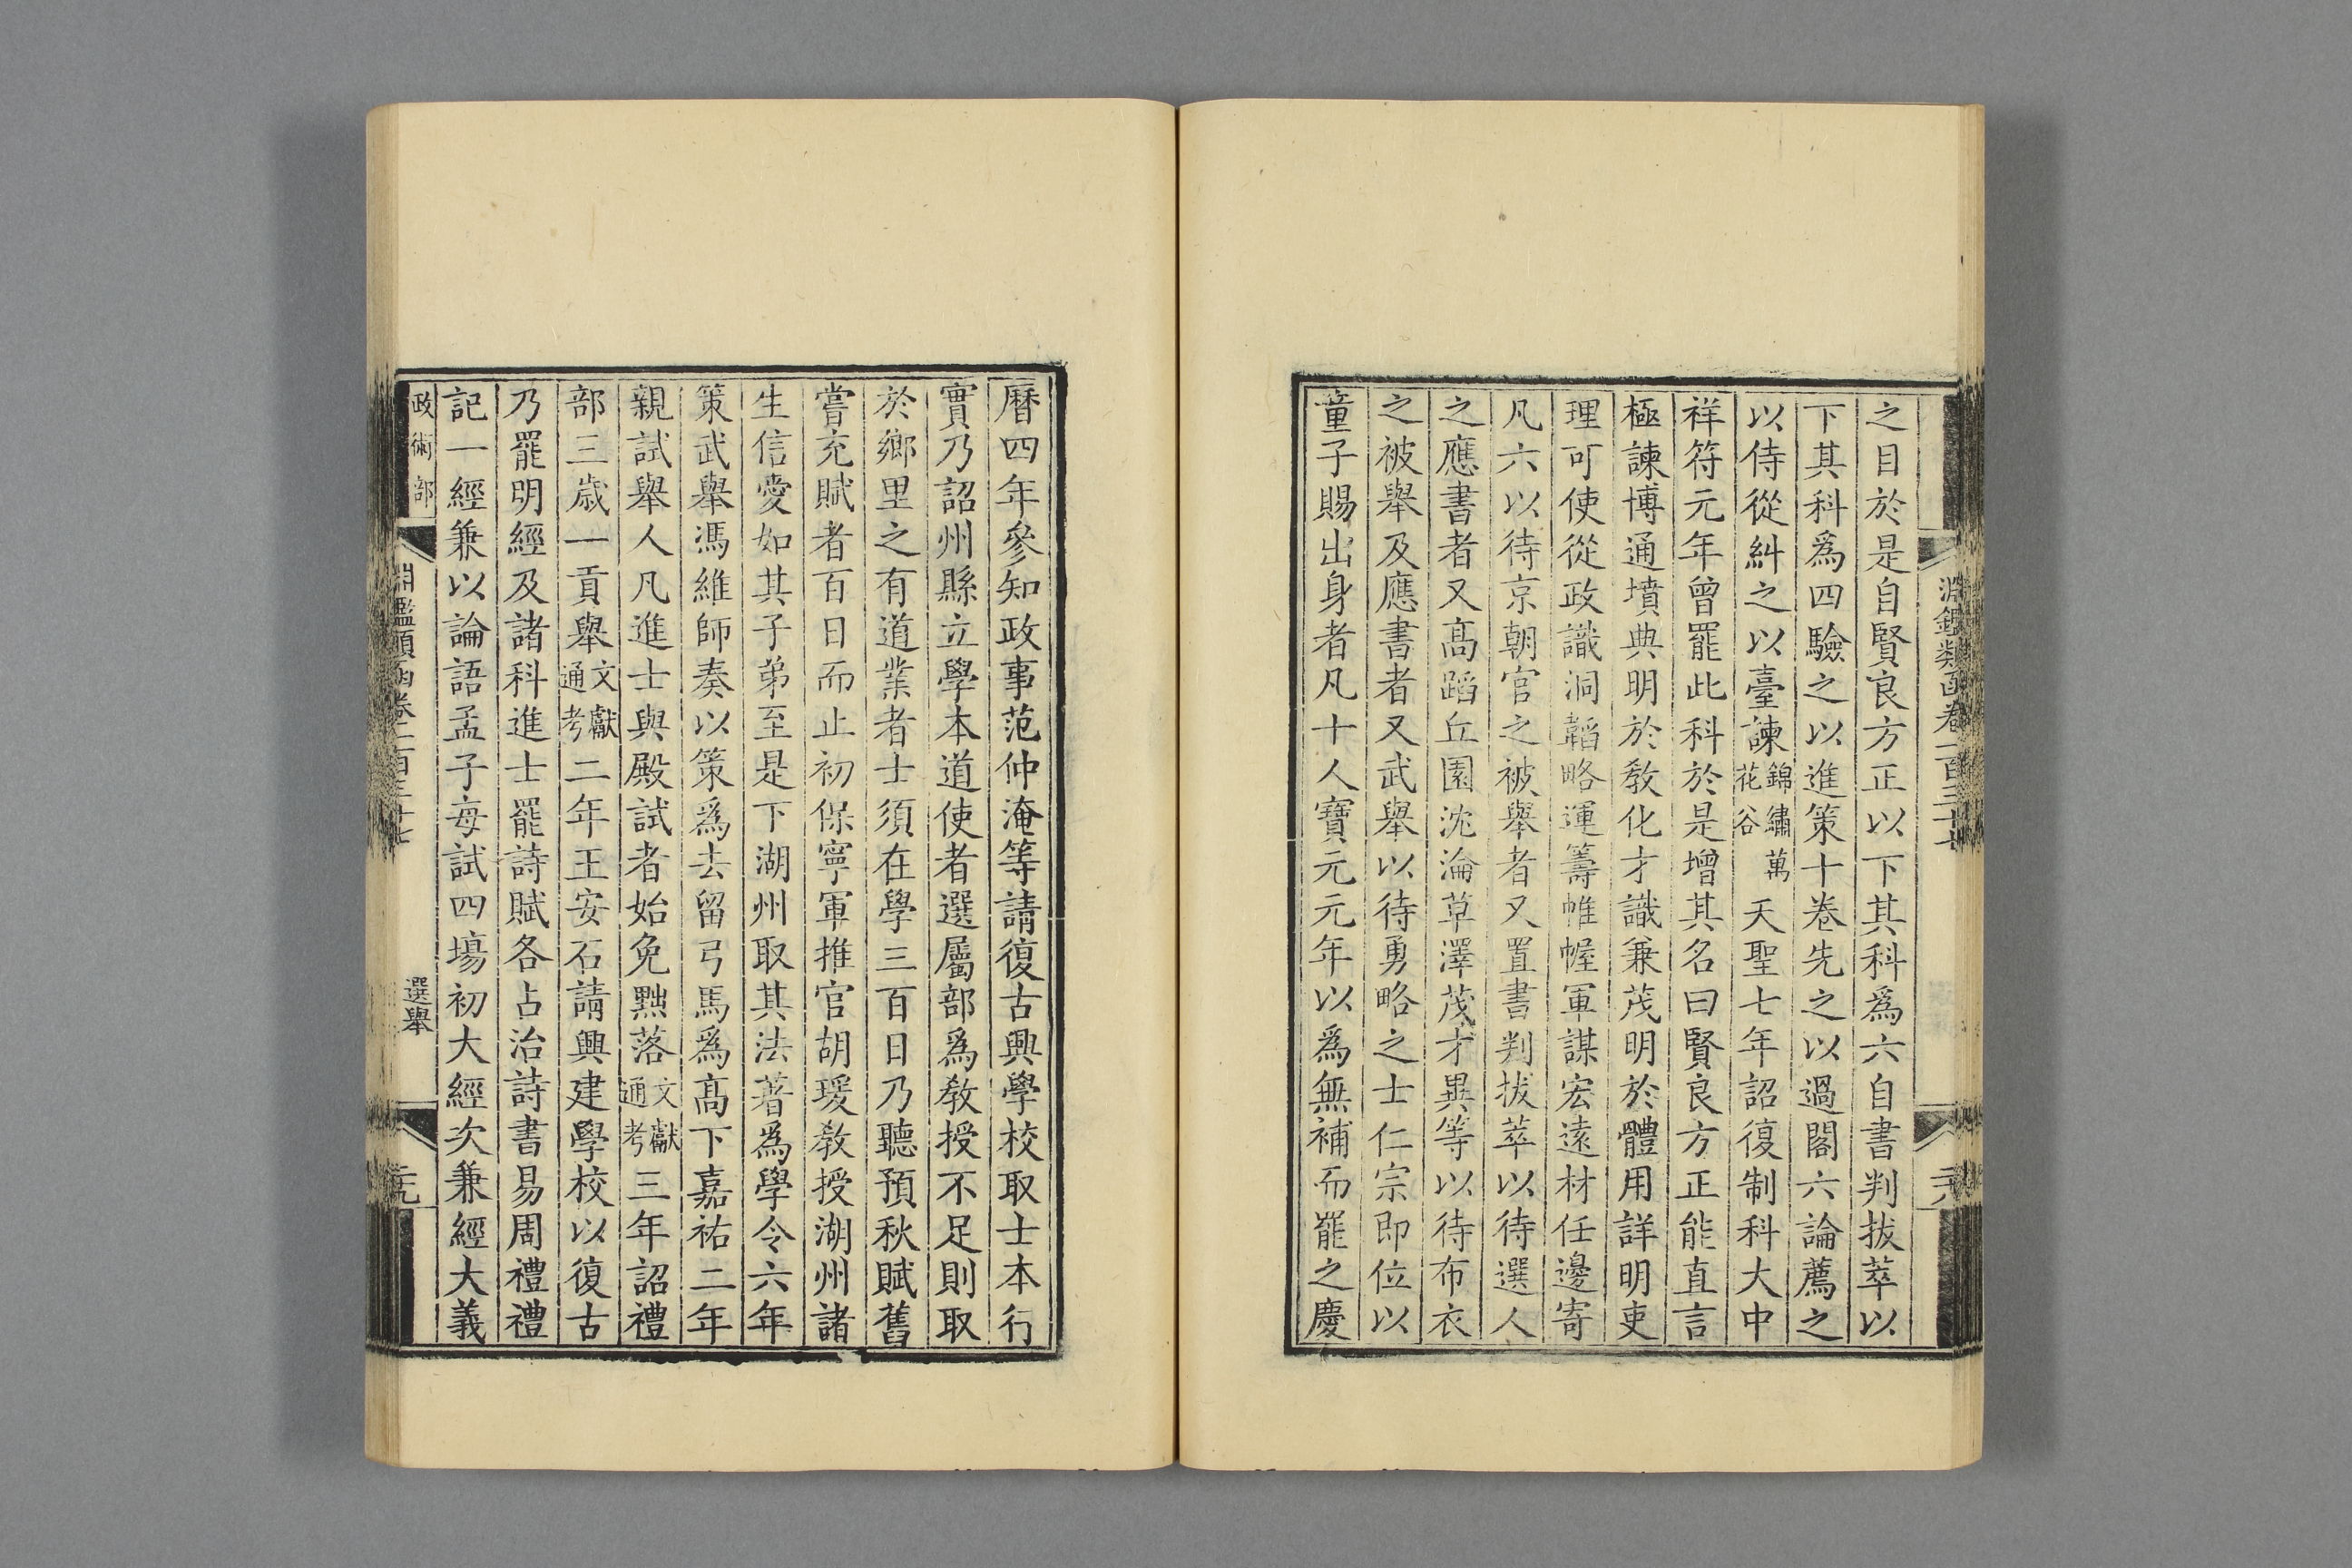 淵鑑類函卷一百三十七
之目於是自賢良方正以下其科爲六自書判拔萃以
下其科爲四驗之以進策十卷先之以過閣六論薦之
以侍從糾之以臺諫錦繡萬花谷天聖七年詔復制科大中
祥符元年曾罷此科於是增其名曰賢良方正能直言
極諫博通墳典明於敎化才識兼茂明於體用詳明吏
理可使從政識洞韜略運籌帷幄軍謀宏遠材任邊寄
凡六以待京朝官之被舉者又置書判拔萃以待選人
之應書者又高蹈丘園沈淪草澤茂才異等以待布衣
之被舉及應書者又武舉以待勇略之士仁宗即位以
童子賜出身者凡十人寶元元年以爲無補而罷之慶
曆四年參知政事范仲淹等請復古興學校取士本行
實乃詔州縣立學本道使者選屬部爲敎授不足則取
於鄉里之有道業者士須在學三百日乃聽預秋賦舊
嘗充賦者百日而止初保寧軍推官胡瑗敎授湖州諸
生信愛如其子弟至是下湖州取其法著爲學令六年
策武舉馮維師奏以策爲去留弓馬爲高下嘉祐二年
親試舉人凡進士與殿試者始免黜落文獻通考三年詔禮
部三歲一貢舉文獻通考二年王安石請興建學校以復古
乃罷明經及諸科進士罷詩賦各占治詩書易周禮禮
記一經兼以論語孟子每試四塲初大經次兼經大義
政術部
淵鑑類函卷一百三十七
選舉
元